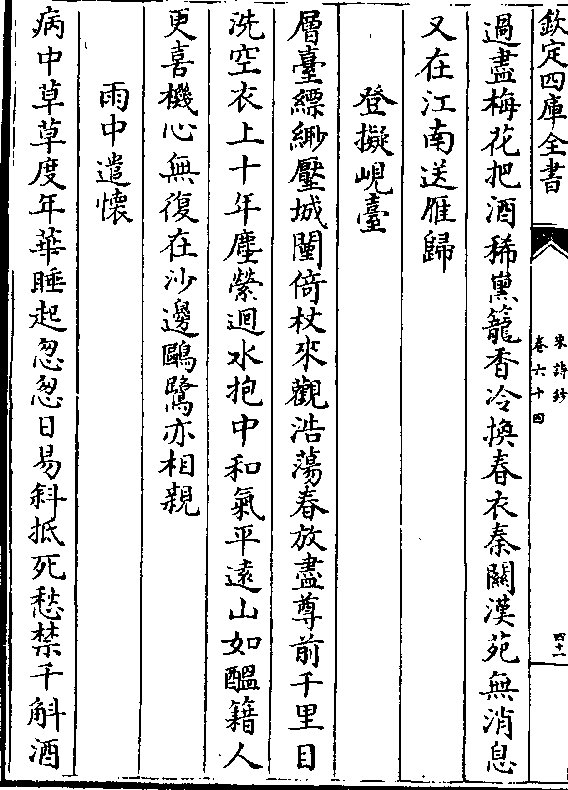 欽定四庫全書
宋詩鈔
卷六十四
四十一
過盡梅花把酒稀熏籠香冷換春衣秦關漢苑無消息
又在江南送雁歸
登擬峴臺
層臺縹緲壓城闉倚杖來觀浩蕩春放盡尊前千里目
洗空衣上十年塵縈迴水抱中和氣平遠山如醞籍人
更喜機心無復在沙邊鷗鷺亦相親
雨中遣懷
病中草草度年華睡起怱怱日易斜抵死愁禁千斛酒